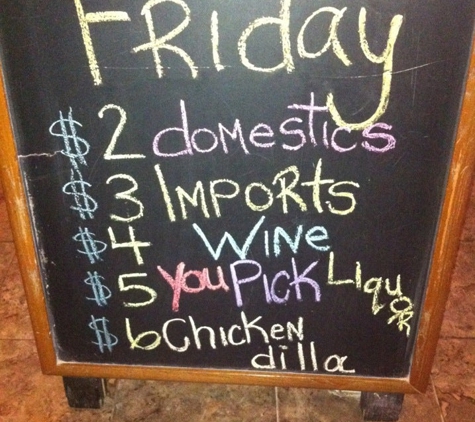 Friday
$2 domestics
$3 Imports
$4 Wine
$5 You Pick Liquor
$6 Chicken
dilla